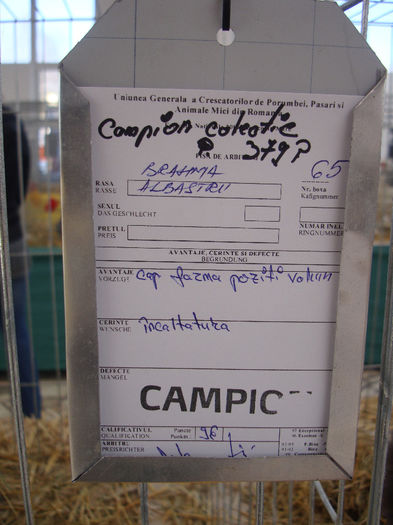 Uniunea Generala a Crescatorilor de Porumbei, Pasari si
Animale Mici din Romania
Campion colectie
379 P
BRAHMA 65
RASA ALBASTRU Nr. boxa
RASSE Kafignummer
SEXUL
DAS GESCHLECHT
PRETUL NUMAR INEL
PREIS RINGNUMMER
AVANTAJE, CERINTE SI DEFECTE
BEGRUNDUNG
AVANTAJE Cap forma poziti volum
VORZUGE
CERINTE incaltatura
WUNSCHE
DEFECTE
MANGEL
CAMPIO
CALIFICATIVUL Puncte 96
QUALIFICATION Punkte
ARBITRU
PREISRICHTER